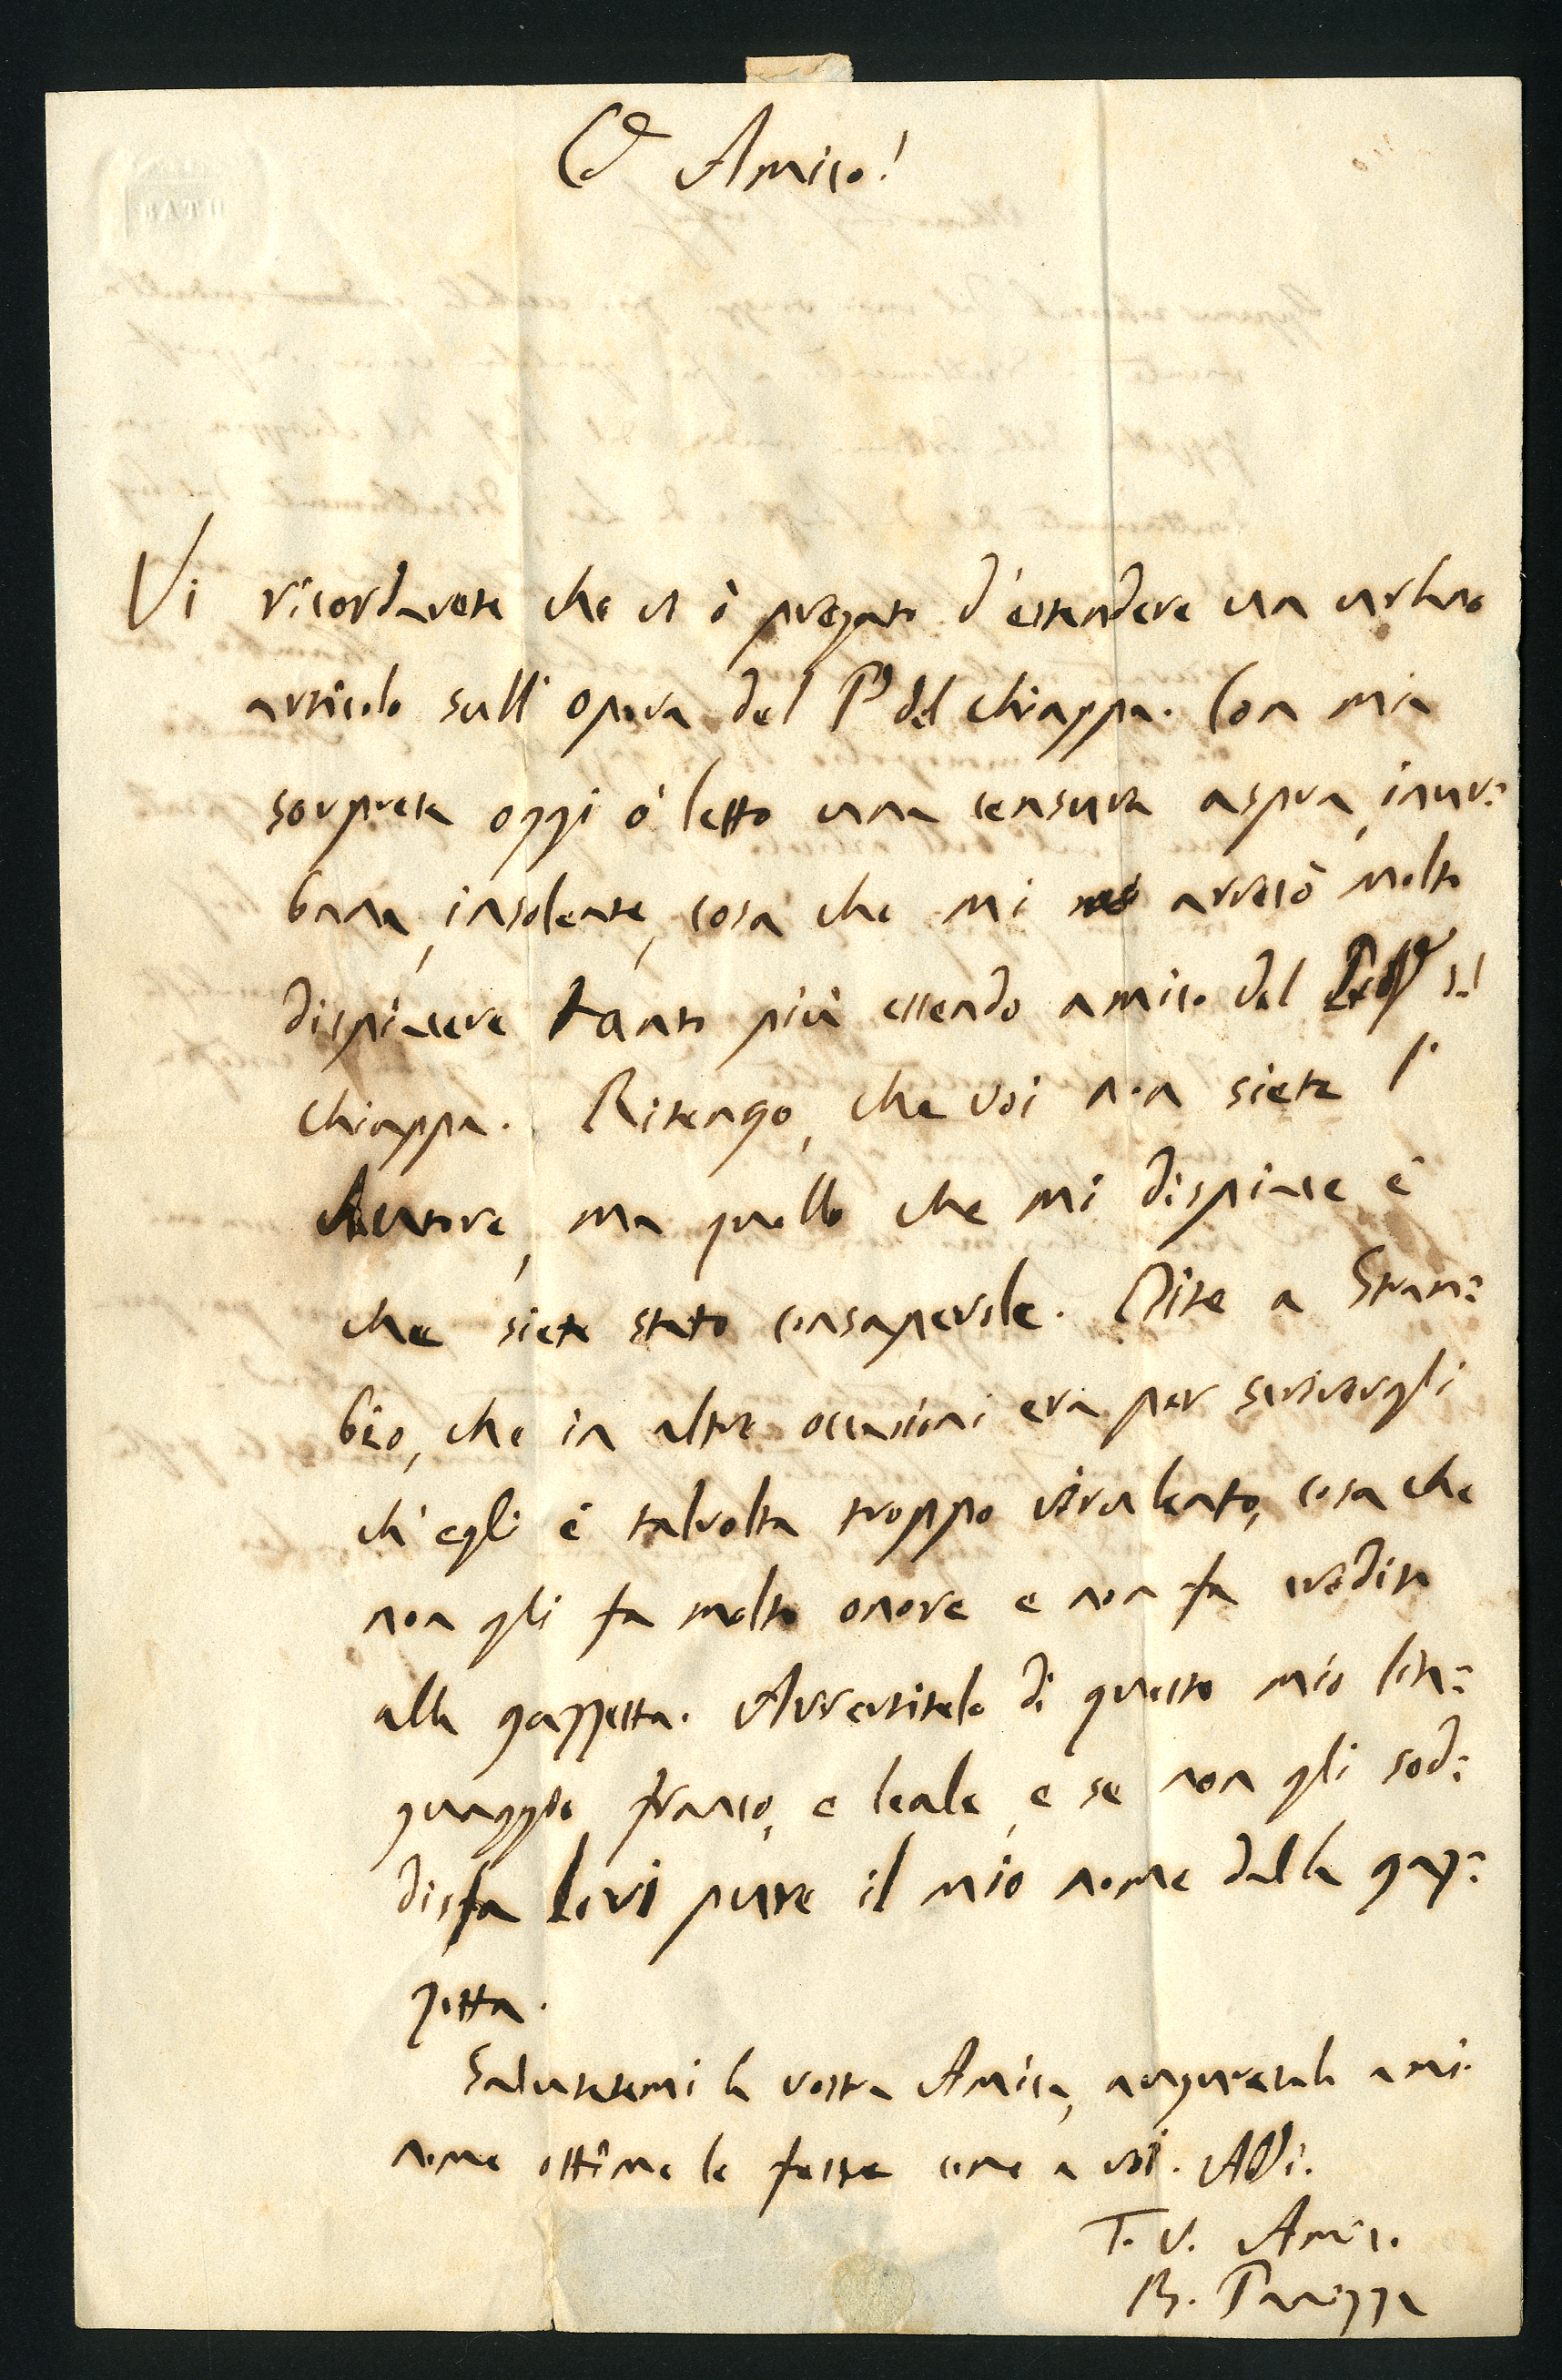 C.o Amico!
Vi ricorderete che vi ò pregato d'estendere un urbano
articolo sull'opera del P. del Chiappa. Con mia
sorpresa oggi ò letto una censura aspra, inur=
bana, insolente, cosa che mi arrecò molto
dispiacere tanto più essendo amico del
Chiappa. Ritengo, che voi non siete l'
autore, ma quello che mi dispiace è
che siete stato consapevole. Dite a Stram=
bio, che in altre occasioni era per scrivergli
ch'egli è talvolta troppo virulento, cosa che
non gli fa molto onore e non fa credito
alla gazzetta. Avvertitelo di questo mio lin=
guaggio franco, e leale, e se non gli sod=
disfa levi pure il mio nome dalla gaz=
zetta.
Salutatemi la vostra Amica, auguratele a mio
nome ottime le feste come a voi. Add.
T. V. Amico
B. Panizza